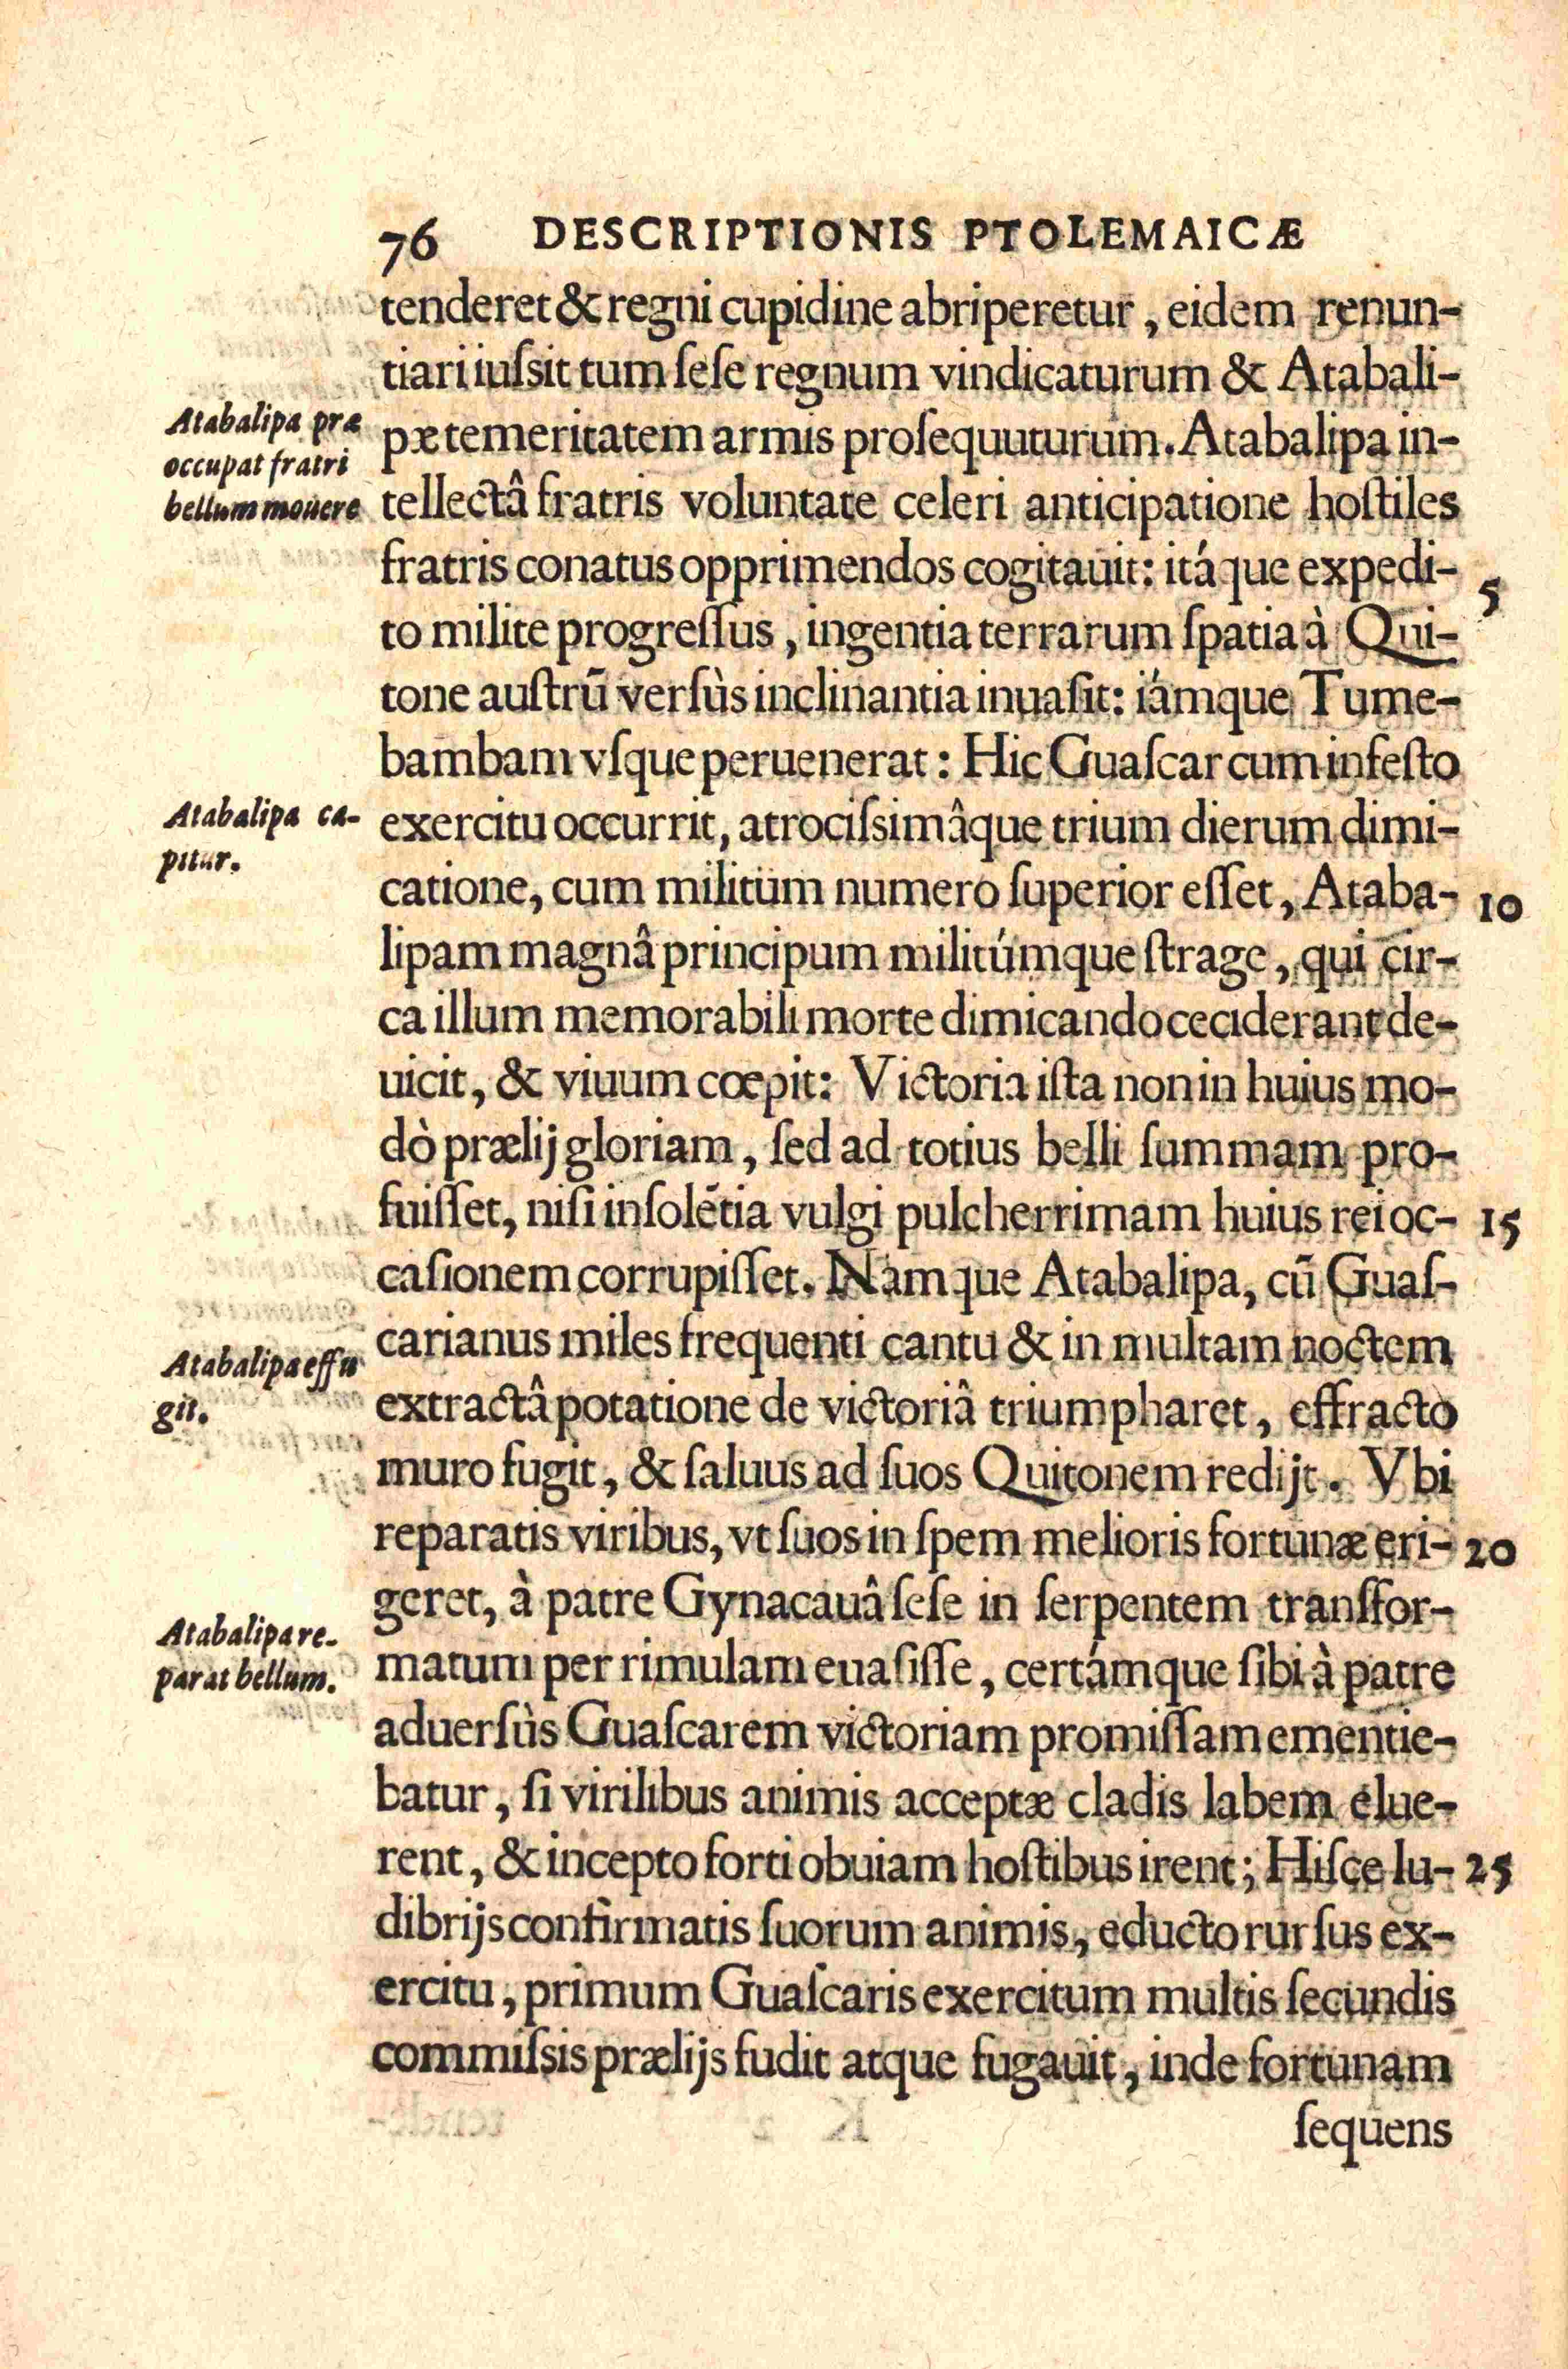 76 DESCRIPTIONIS PTOLEMAICÆ
tenderet & regni cupidine abriperetur, eidem renun-
tiari iuſsit tum ſeſe regnum vindicaturum & Atabali-
pæ temeritatem armis proſequuturum. Atabalipa in-
tellectâ fratris voluntate celeri anticipatione hoſtiles
fratris conatus opprimendos cogitauit: itáque expedi-
5
to milite progreſſus, ingentia terrarum ſpatia à Qui-
tone auſtrū verſùs inclinantia inuaſit: iámque Tume-
bambam vſque peruenerat: Hic Guaſcar cum infeſto
exercitu occurrit, atrociſsimâque trium dierum dimi-
catione, cum militum numero ſuperior eſſet, Ataba-
10
lipam magnâ principum militúmque ſtrage, qui cir-
ca illum memorabili morte dimicando ceciderant de-
uicit, & viuum cœpit: Victoria iſta non in huius mo-
dò prælij gloriam, ſed ad totius belli ſummam pro-
fuiſſet, niſi inſolētia vulgi pulcherrimam huius rei oc-
15
caſionem corrupiſſet. Namque Atabalipa, cū Guaſ-
carianus miles frequenti cantu & in multam noctem
extractâ potatione de victoriâ triumpharet, effracto
muro fugit, & ſaluus ad ſuos Quitonem redijt. Vbi
reparatis viribus, vt ſuos in ſpem melioris fortunæ eri-
20
geret, à patre Gynacauâ ſeſe in ſerpentem transfor-
matum per rimulam euaſiſſe, certámque ſibi à patre
aduerſùs Guaſcarem victoriam promiſſam ementie-
batur, ſi virilibus animis acceptæ cladis labem elue-
rent, & incepto forti obuiam hoſtibus irent; Hiſce lu-
25
dibrijs confirmatis ſuorum animis, educto rurſus ex-
ercitu, primum Guaſcaris exercitum multis ſecundis
commiſsis prælijs fudit atque fugauit, inde fortunam
ſequens
Atabalipa præ
occupat fratri
bellum mouere
Atabalipa ca-
pitur.
Atabalipa effu
git.
Atabalipa re-
parat bellum.